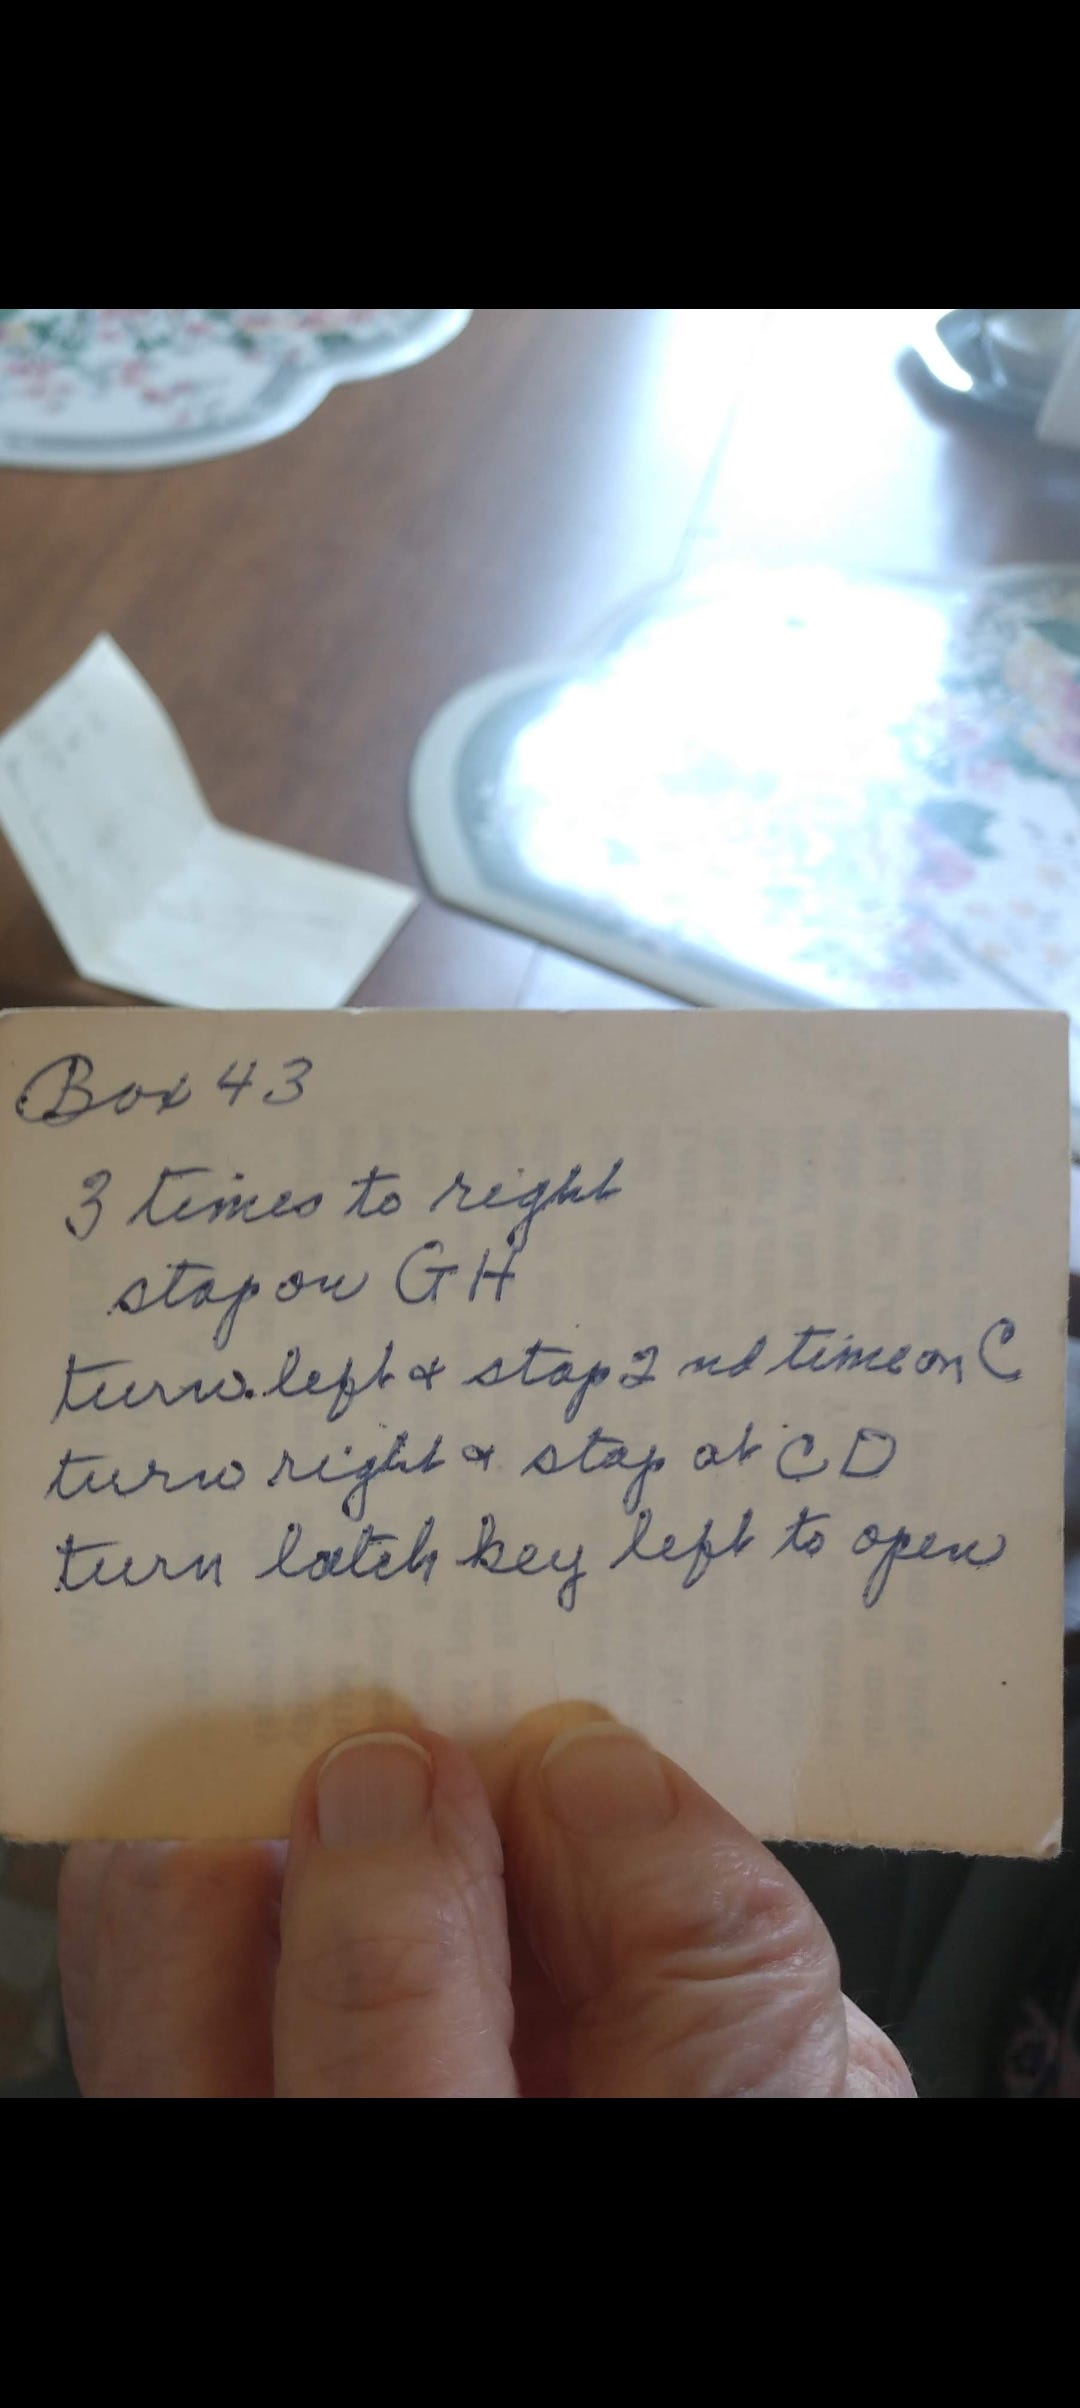 Box 43
3 times to right
stop on GH
turn left & stop 2nd time on C
turn right & stop at CD
turn latch key left to open